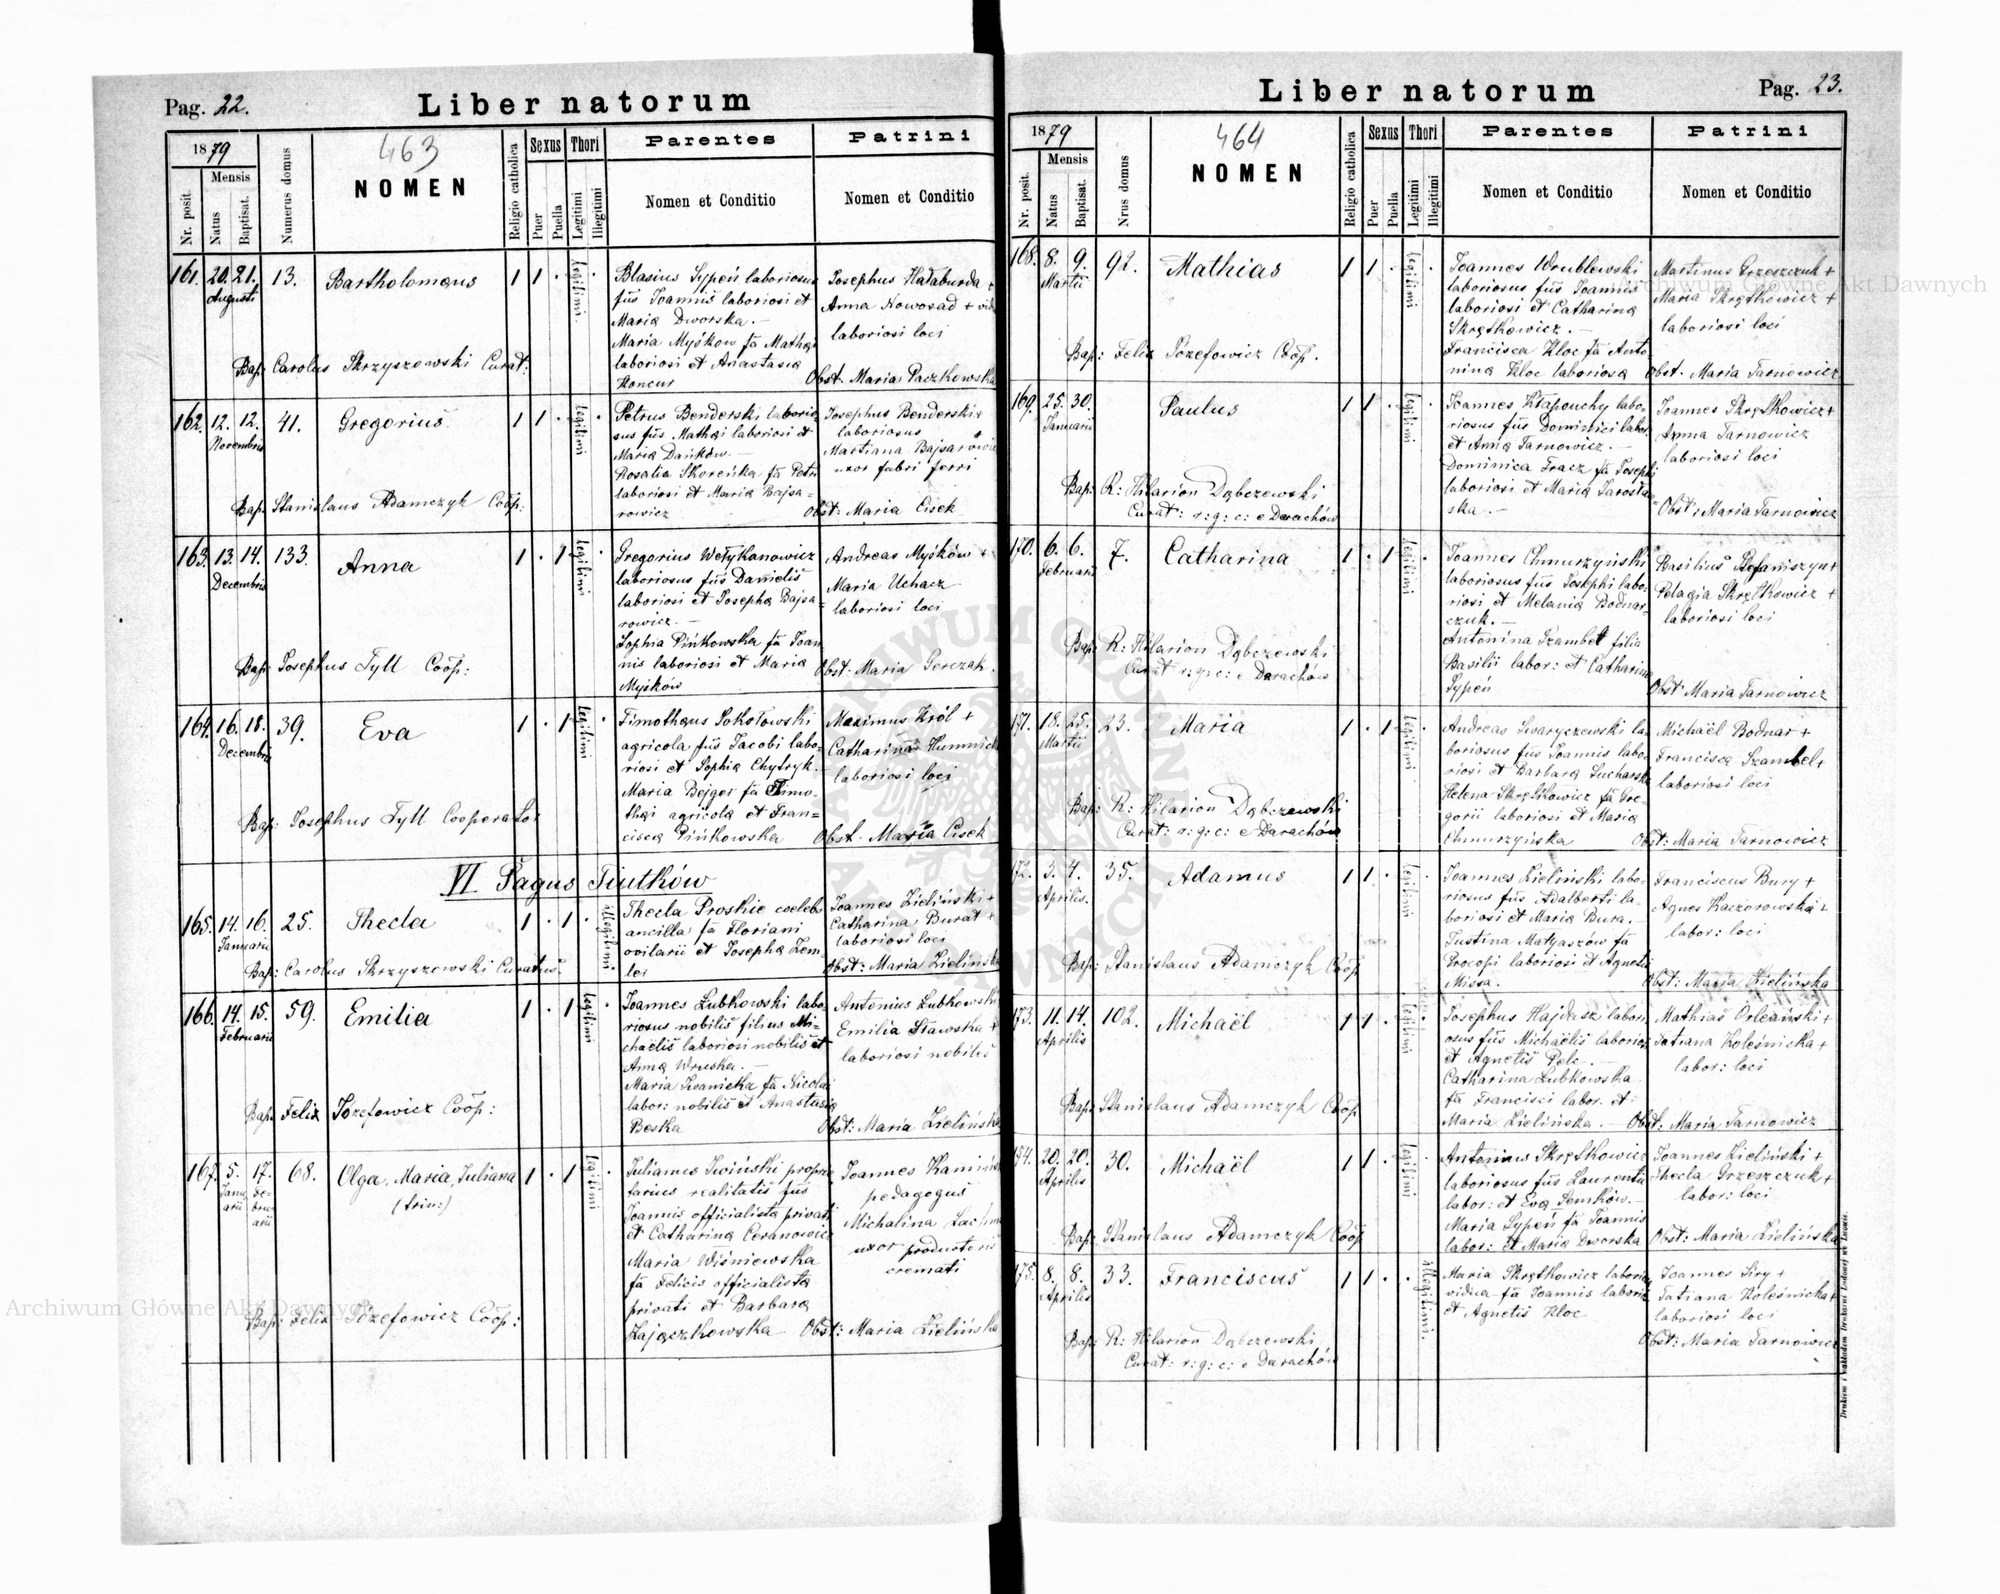 Pag. 22.
Liber natorum
1879
463
Nr. posit.
Mensis
Natus
Baptisat.
Numerus domus
NOMEN
Religio catholica
Sexus
Puer
Puella
Thori
Legitimi
Illegitimi
Parentes
Nomen et Conditio
Patrini
Nomen et Conditio
161. 20. 21. 13. Bartholomaus 1 1 .
Augusti
legitimi
Blasius Sypeń laboriosus
fús Joannis laboriosi et
Maria Dworska. —
Maria Myśkow fa Mathai
laboriosi et Anastasia
Koncur
Josephus Hałaburda +
Anna Nowosad +
laboriosi loci
Obst. Maria Paczkowska
Bap: Carolus Skrzyszowski Curat:
162. 12. 12. 41. Gregorius 1 1 .
Novembris
legitimi
Petrus Benderski laborio-
sus fús Mathai laboriosi et
Maria Dańków. —
Rosalia Skoreńka fa Petri
laboriosi et Maria Bajsa-
rowicz
Josephus Benderski +
laboriosus
Martiana Bajsarowic
uxor fabri ferri
Obst: Maria Cisek
Bap: Stanislaus Adamczyk Coop:
163. 13. 14. 133. Anna 1 . 1
Decembris
legitimi
Gregorius Wełykanowicz
laboriosus fús Danielis
laboriosi et Josepha Bajsa-
rowicz. —
Sophia Pińkowska fa Joan
nis laboriosi et Maria
Myśków
Andreas Myśków +
Maria Uchacz
laboriosi loci
Obst: Maria Gerczak.
Bap: Josephus Tyll Coop:
164. 16. 18. 39. Eva 1 . 1
Decembris
legitimi
Timothaus Sokołowski
agricola fús Jacobi labo-
riosi et Sophia Chytryk. —
Maria Bejger fa Timo-
thai agricola et Fran-
cisca Pińkowska
Maximus Król +
Catharina Humnick
laboriosi loci
Obst. Maria Cisek
Bap: Josephus Tyll Cooperator
VI Pagus Tiutków
165. 14. 16. 25. Thecla 1 . 1 .
Januarii
illegitimi
Thecla Proskie coelebs
ancilla fa Floriani
ovilarii et Josepha Zem-
ler
Joannes Zieliński +
Catharina Burat +
laboriosi loci
Obst: Maria Zielińska
Bap: Carolus Skrzyszewski Curatus.
166. 14. 15. 59. Emilia 1 . 1
Februarii
legitimi
Joannes Łubkowski labo-
riosus nobilis filius Mi-
chaelis laboriosi nobilis et
Anna Wruska. —
Maria Iwanicka fa Nicolai
labor: nobilis et Anastasia
Beska
Antonius Łubkowski
Emilia Stawska +
laboriosi nobiles
Obst: Maria Zielińska
Bap: Felix Józefowicz Coop:
167. 5. 17. 68. Olga, Maria, Juliana 1 . 1
Janu-
arii
Fe-
bru-
arii
(trin:)
legitimi
Julianus Iwiński proprie
tarius realitatis fús
Joannis officialista privati
et Catharina Ceranowicz
Maria Wiśniewska
fa Felicis officialista
privati et Barbara
Zajączkowska
Joannes Kamińsk
pedagogus
Michalina Lachm
uxor productoris
cremati
Obst: Maria Zielińska
Bap: Felix Józefowicz Coop:
Liber natorum
Pag. 23.
1879
464
Nr. posit.
Mensis
Natus
Baptisat.
Nrus domus
NOMEN
Religio catholica
Sexus
Puer
Puella
Thori
Legitimi
Illegitimi
Parentes
Nomen et Conditio
Patrini
Nomen et Conditio
168. 8. 9. 92. Mathias 1 1 .
Martii
legitimi
Joannes Wrublewski
laboriosus fús Joannis
laboriosi et Catharina
Skrętkowicz. —
Francisca Kloc fa Anto-
nina Kloc laboriosa
Martinus Grzeszczuk +
Maria Skrętkowicz +
laboriosi loci
Obst. Maria Tarnowicz
Bap: Felix Józefowicz Coop.
169. 25. 30. Paulus 1 1 .
Januarii
legitimi
Joannes Kłapouchy labo-
riosus fús Dominici labor
et Anna Tarnowicz. —
Dominica Tracz fa Josephi
laboriosi et Maria Jarosła-
ska. —
Joannes Skrętkowicz +
Anna Tarnowicz
laboriosi loci
Obst: Maria Tarnowicz
Bap: R: Hilarion Dąbczewski
Curat: r: g: c: e Darachów
170. 6. 6. 7. Catharina 1 . 1
Februarii
legitimi
Joannes Chmurzyński
laboriosus fús Josephi labo-
riosi et Melania Bodnar-
czuk. —
Antonina Szambel filia
Basilii labor: et Catharina
Sypeń
Basilius Stefaniszyn +
Pelagia Skrętkowicz +
laboriosi loci
Obst: Maria Tarnowicz
Bap: R: Hilarion Dąbczewski
Curat r: g: c: e Darachów
171. 18. 25. 23. Maria 1 . 1
Martii
legitimi
Andreas Swaryczewski la-
boriosus fús Joannis labo-
riosi et Barbara Sucharska
Helena Skrętkowicz fa Gre-
gorii laboriosi et Maria
Chmurzyńska
Michaël Bodnar +
Francisca Szambel +
laboriosi loci
Obst: Maria Tarnowicz
Bap: R: Hilarion Dąbczewski
Curat: r: g: c: e Darachów
172. 3. 4. 35. Adamus 1 1 .
Aprilis.
legitimi
Joannes Zieliński labo-
riosus fús Adalberti la-
boriosi et Maria Bura. —
Justina Matyaszów fa
Procopi laboriosi et Agnetis
Missa.
Franciscus Bury +
Agnes Kaczorowska +
labor: loci
Obst: Maria Zielińska
Bap: Stanislaus Adamczyk Coop
173. 11. 14. 102. Michaël 1 1 .
Aprilis
legitimi
Josephus Hajdasz labori
osus fús Michaëlis laborios
et Agnetis Pelc. —
Catharina Łubkowska
fa Francisci labor. et
Maria Zielińska. —
Mathias Orleański +
Tatiana Koleśnicka +
labor: loci
Obst. Maria Tarnowicz
Bap: Stanislaus Adamczyk Coop
174. 20. 20. 30. Michaël 1 1 .
Aprilis
legitimi
Antonius Skrętkowicz
laboriosus fús Laurentii
labor: et Eva Semków. —
Maria Sypeń fa Joannis
labor: et Maria Dworska
Joannes Zieliński +
Thecla Grzeszczuk +
labor: loci
Obst: Maria Zielińska
Bap: Stanislaus Adamczyk Coop
175. 8. 8. 33. Franciscus 1 1 .
Aprilis
illegitimi
Maria Skrętkowicz laborios
vidua fa Joannis laborio
et Agnetis Kloc
Joannes Siry +
Tatiana Koleśnicka +
laboriosi loci
Obst: Maria Tarnowicz
Bap: R: Hilarion Dąbczewski
Curat: r: g: c: e Darachów
Drukiem i nakładem Drukarni Ludowej we Lwowie.
Archiwum Główne Akt Dawnych
Archiwum Główne Akt Dawnych
ARCHIWUM GŁÓWNE AKT DAWNYCH